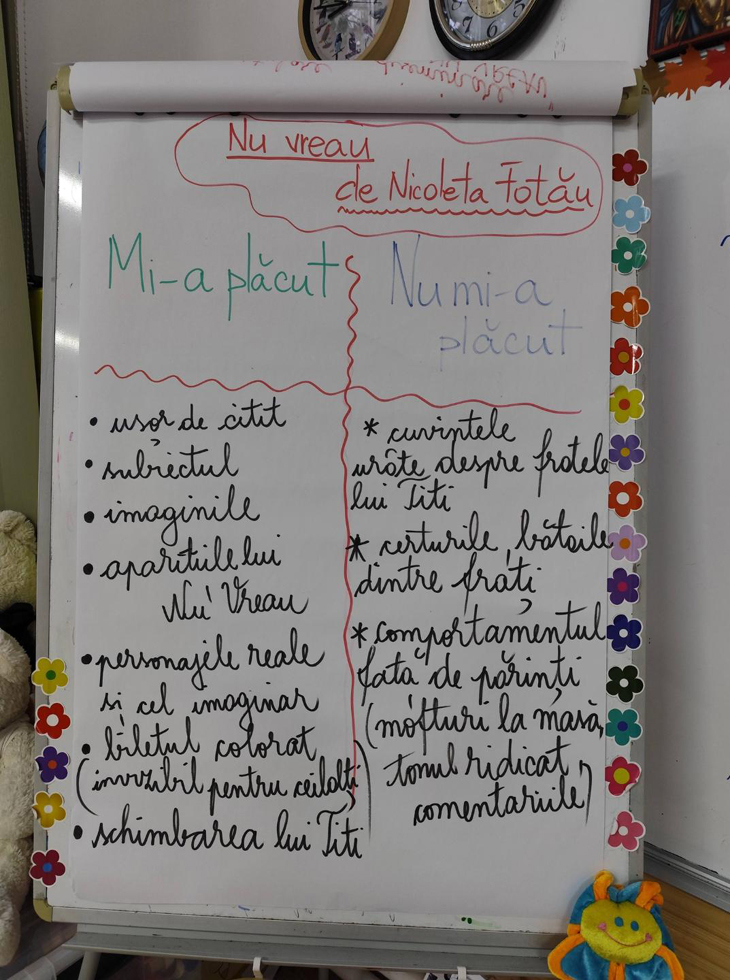 Nu vreau
de Nicoleta Fotău
Mi-a plăcut
Nu mi-a
plăcut
• ușor de citit
• subiectul
• imaginile
• aparițiile lui
Nu Vreau
• personajele reale
și cel imaginar
• biletul colorat
(invizibil pentru ceilalți)
• schimbarea lui Titi
* cuvintele
urâte despre fratele
lui Titi
* certurile, bătăile
dintre frați
* comportamentul
față de părinți
(mofturi la masă,
tonul ridicat,
comentariile)